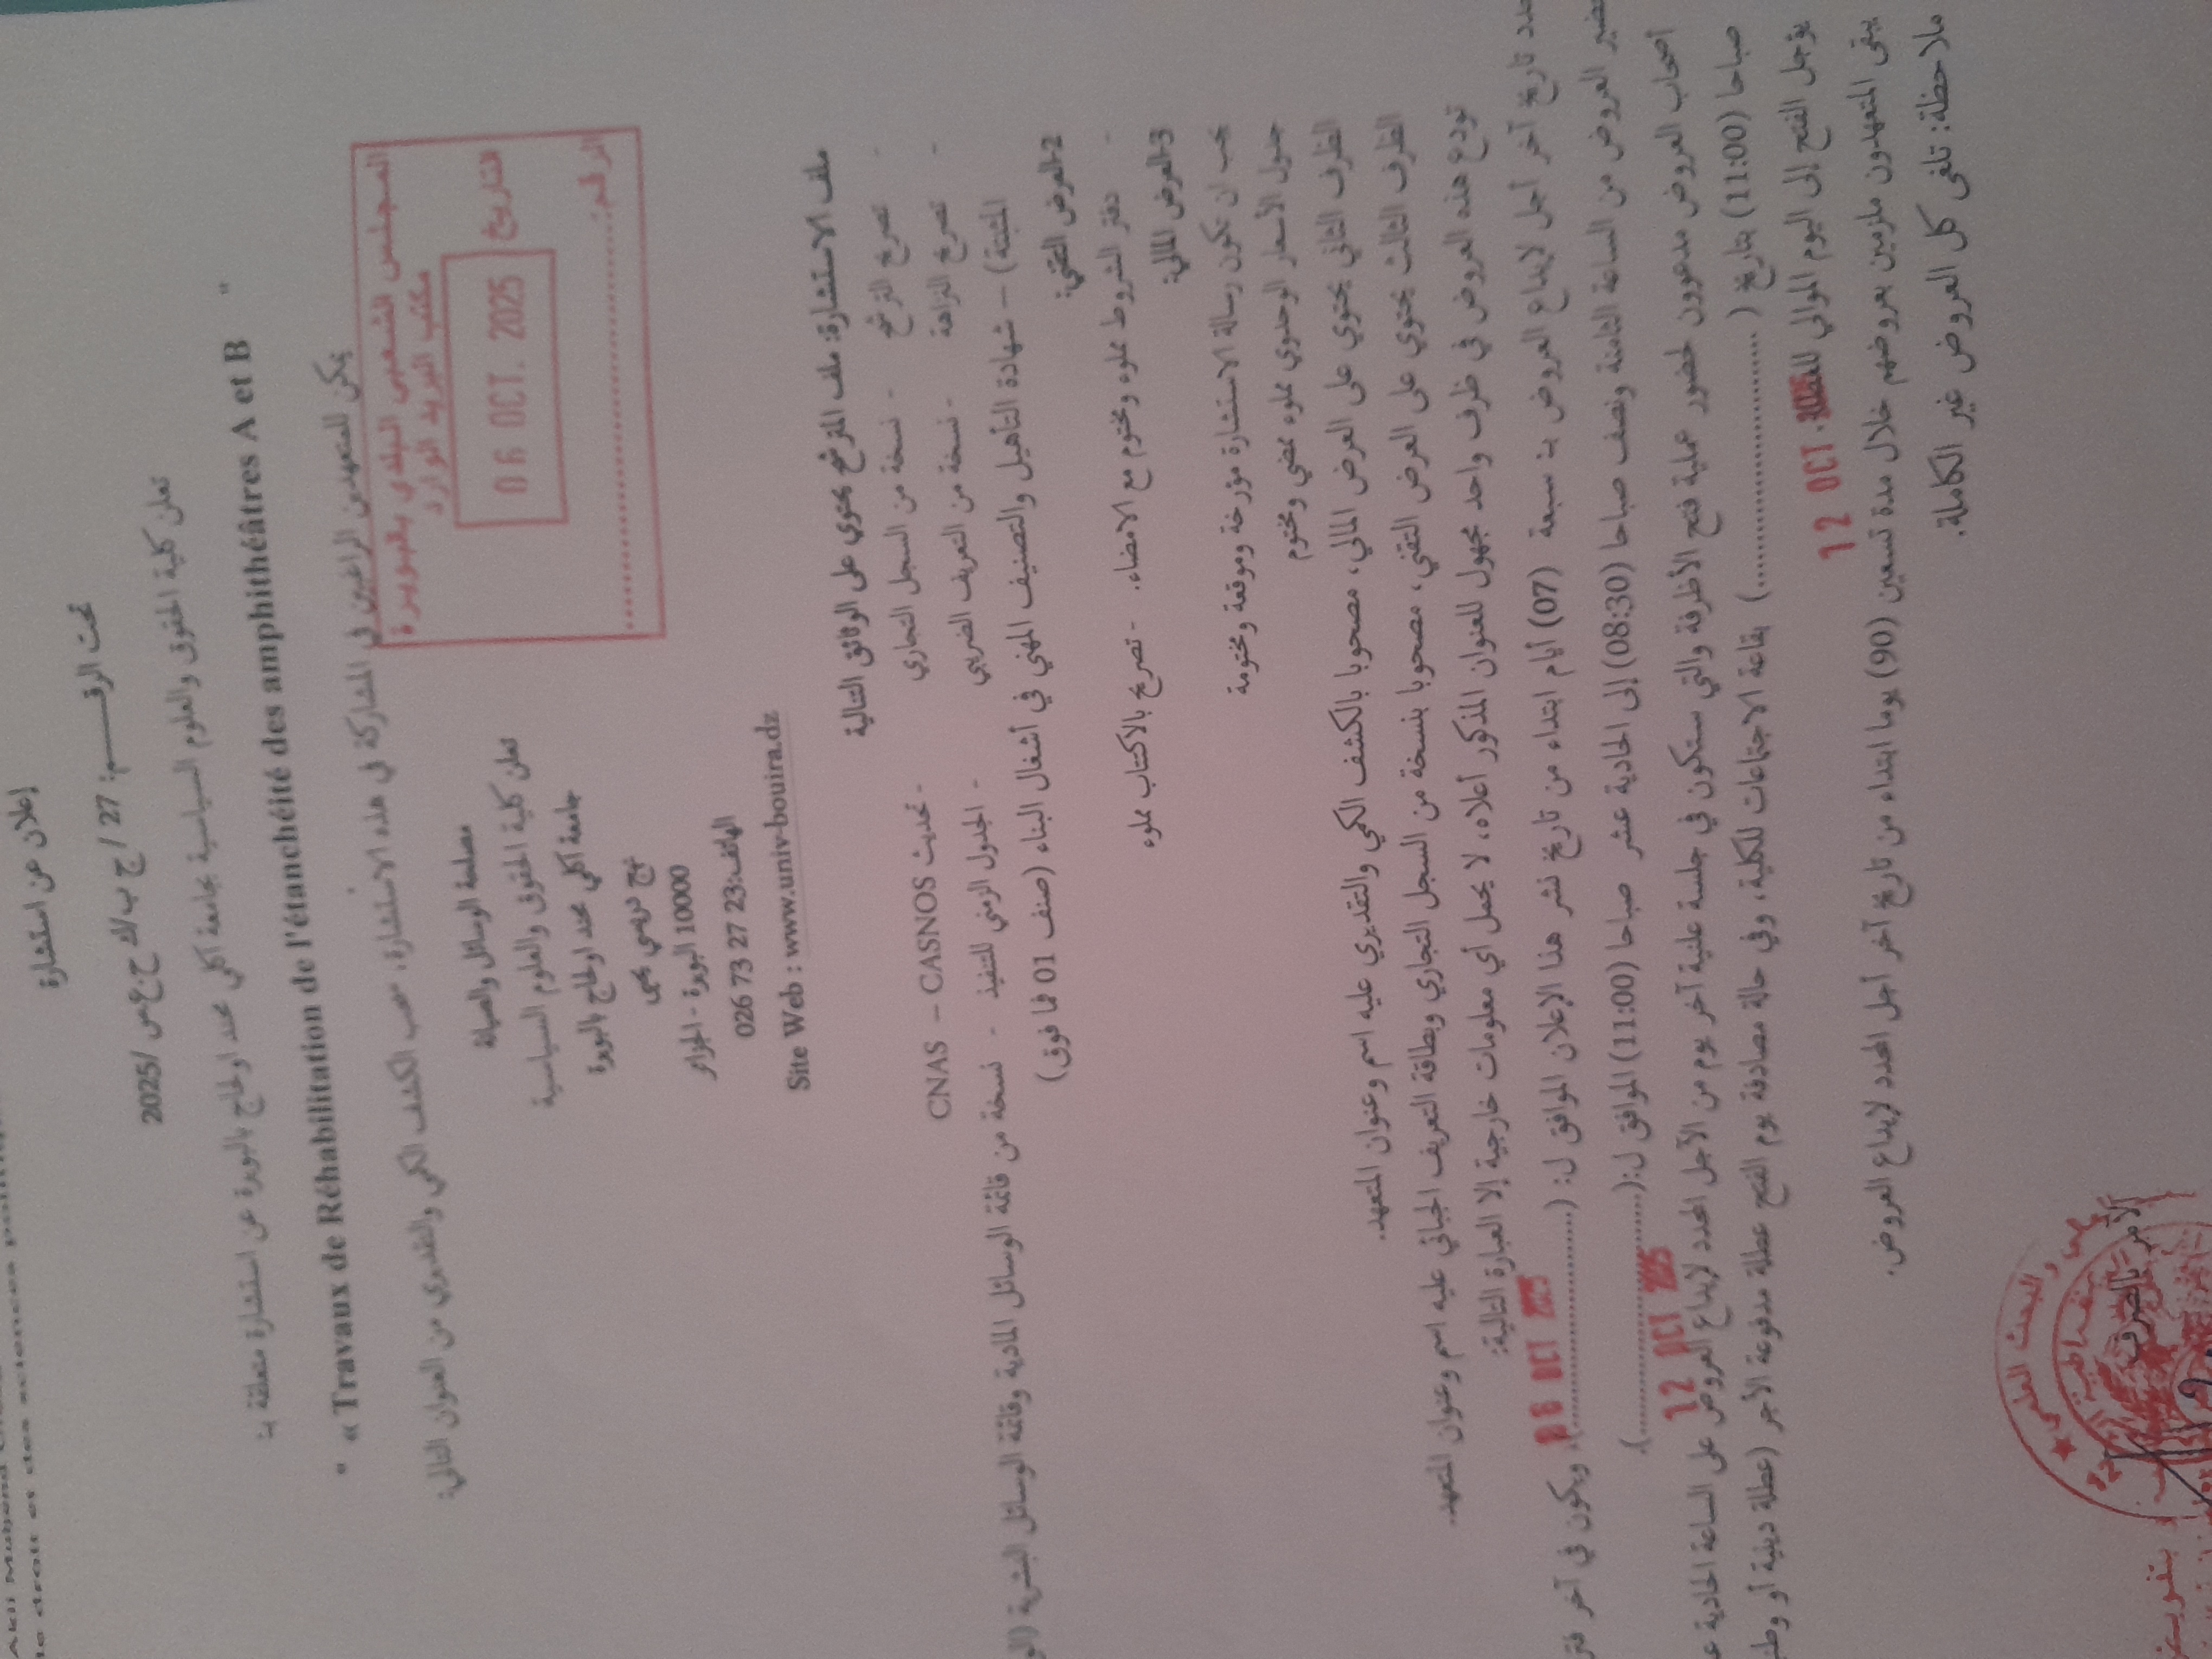 إعلان عن استشارة
تحت الرقـــــــم: 27 / ج ب/ك ح ع س /2025
تعلن كلية الحقوق والعلوم السياسية بجامعة آكلي محند اولحاج بالبويرة عن استشارة متعلقة بـ:
" « Travaux de Réhabilitation de l'étanchéité des amphithéâtres A et B "
يمكن للمتعهدين الراغبين في المشاركة في هذه الاستشارة، سحب الكشف الكمي والتقديري من العنوان التالي:
المجلس الشعبي البلدي بالبويرة
مكتب البريد الوارد
التاريخ
06 OCT. 2025
الرقم:
مصلحة الوسائل والصيانة
تعلن كلية الحقوق والعلوم السياسية
جامعة آكلي محند اولحاج بالبويرة
نهج دريسي يحيى
10000 البويرة - الجزائر
الهاتف: 026 73 27 23
Site Web : www.univ-bouira.dz
ملف الاستشارة: ملف الترشح يحتوي على الوثائق التالية
- تصريح الترشح - نسخة من السجل التجاري - تحديث CNAS – CASNOS
- تصريح النزاهة - نسخة من التعريف الضريبي - الجدول الزمني للتنفيذ - نسخة من قائمة الوسائل المادية وقائمة الوسائل البشرية
المثبتة) – شهادة التأهيل والتصنيف المهني في أشغال البناء (صنف 01 فما فوق)
2-العرض التقني:
- دفتر الشروط مملوء ومختوم مع الامضاء. - تصريح بالاكتتاب مملوء
3-العرض المالي:
يجب ان تكون رسالة الاستشارة مؤرخة وموقعة ومختومة
جدول الأسعار الوحدوي مملوء ممضي ومختوم
الظرف الثاني يحتوي على العرض المالي، مصحوبا بالكشف الكمي والتقديري عليه اسم وعنوان المتعهد.
الظرف الثالث يحتوي على العرض التقني، مصحوبا بنسخة من السجل التجاري وبطاقة التعريف الجبائي عليه اسم وعنوان المتعهد.
تودع هذه العروض في ظرف واحد مجهول للعنوان المذكور أعلاه، لا يحمل أي معلومات خارجية إلا العبارة التالية:
تاريخ آخر أجل لإيداع العروض بـ سبعة (07) أيام ابتداء من تاريخ نشر هذا الإعلان الموافق لـ: (..............). ويكون في آخر
06 OCT 2025
العروض من الساعة الثامنة ونصف صباحا (08:30) إلى الحادية عشر صباحا (11:00) الموافق لـ:(..............).
12 OCT 2025
أصحاب العروض مدعوون لحضور عملية فتح الأظرفة والتي ستكون في جلسة علنية آخر يوم من الأجل المحدد لإيداع العروض على الساعة الحادية
صباحا (11:00) بتاريخ (..............) بقاعة الاجتماعات للكلية، وفي حالة مصادفة يوم الفتح عطلة مدفوعة الأجر (عطلة دينية أو
يؤجل الفتح إلى اليوم الموالي للفتح.
12 OCT. 2025
يبقى المتعهدون ملزمين بعروضهم خلال مدة تسعين (90) يوما ابتداء من تاريخ آخر أجل المحدد لإيداع العروض.
ملاحظة: تلغى كل العروض غير الكاملة.
الآمر بالصرف